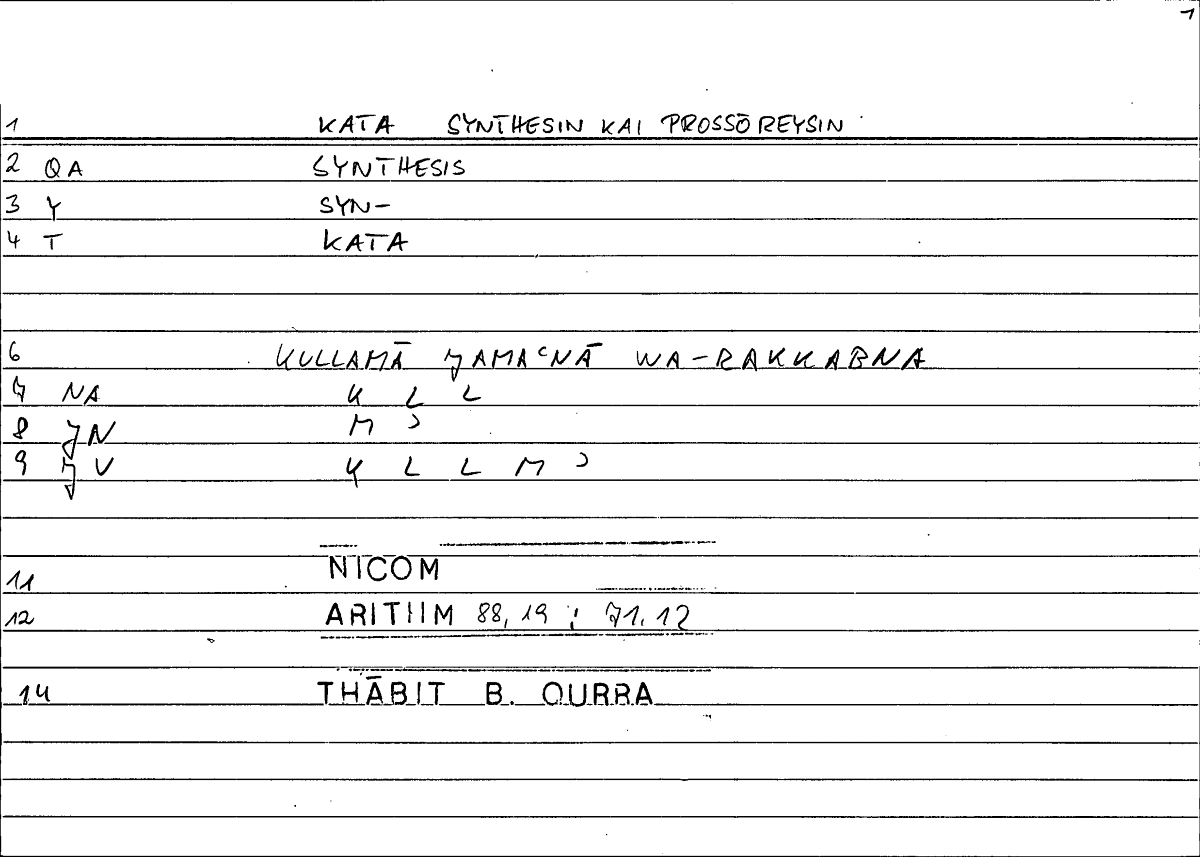 1
1 KATA SYNTHESIN KAI PROSSŌREYSIN
2 QA SYNTHESIS
3 Y SYN-
4 T KATA
6 KULLAMĀ ǦAMAʿNĀ WA-RAKKABNA
7 NA K L L
8 ǦN M ʾ
9 ǦV K L L M ʾ
11 NICOM
12 ARITIIM 88,19 ; 71.12
14 THĀBIT B. QURRA